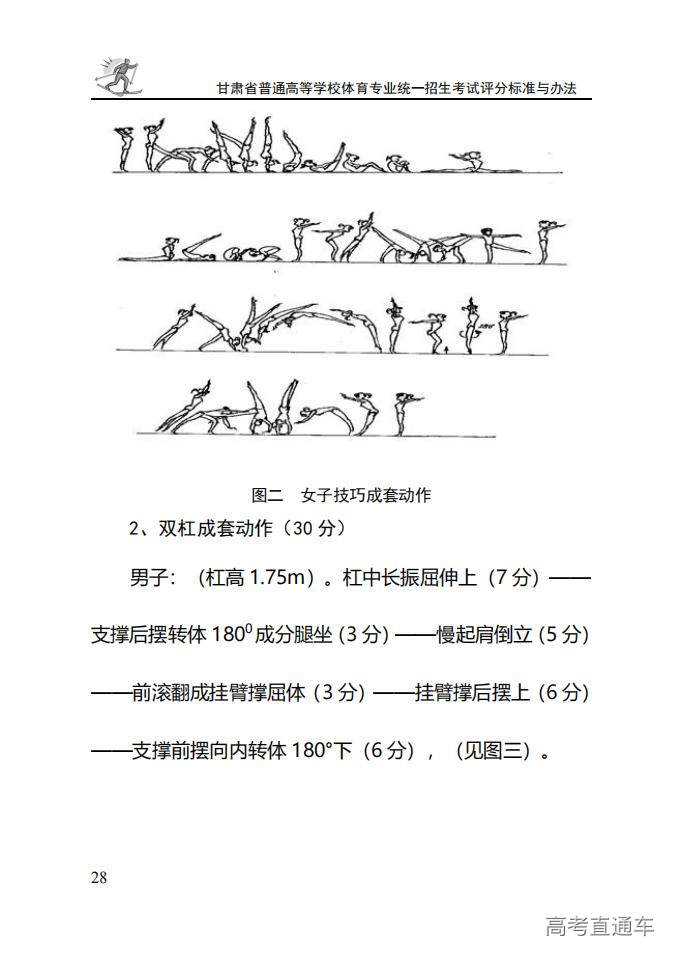 甘肃省普通高等学校体育专业统一招生考试评分标准与办法
图二　女子技巧成套动作
2、双杠成套动作（30 分）
男子：（杠高 1.75m）。杠中长振屈伸上（7 分）——
支撑后摆转体 180⁰ 成分腿坐（3 分）——慢起肩倒立（5 分）
——前滚翻成挂臂撑屈体（3 分）——挂臂撑后摆上（6 分）
——支撑前摆向内转体 180°下（6 分），（见图三）。
28
高考直通车